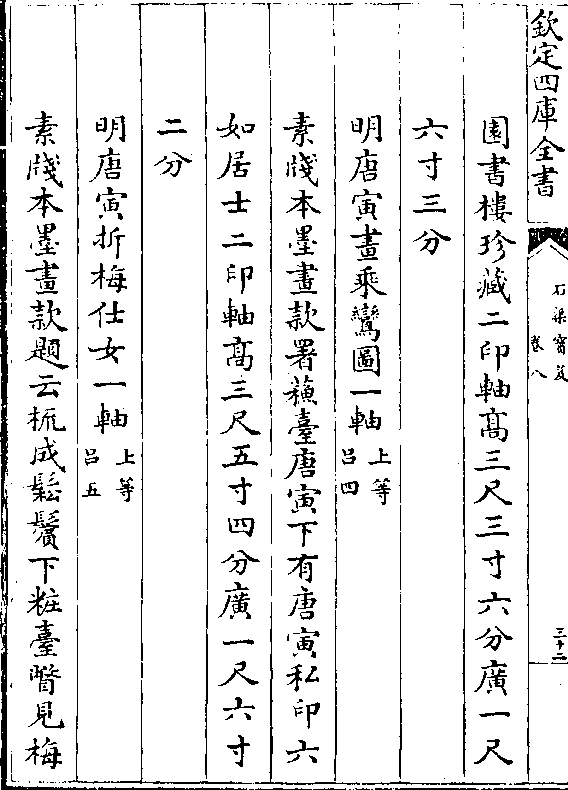 欽定四庫全書
石渠寶笈
卷八
三十二
園書樓珍藏二印軸高三尺三寸六分廣一尺
六寸三分
明唐寅畫乘鸞圖一軸 上等 吕四
素牋本墨畫款署蘓臺唐寅下有唐寅私印六
如居士二印軸高三尺五寸四分廣一尺六寸
二分
明唐寅折梅仕女一軸 上等 吕五
素牋本墨畫款題云梳成鬆鬢下粧臺瞥見梅